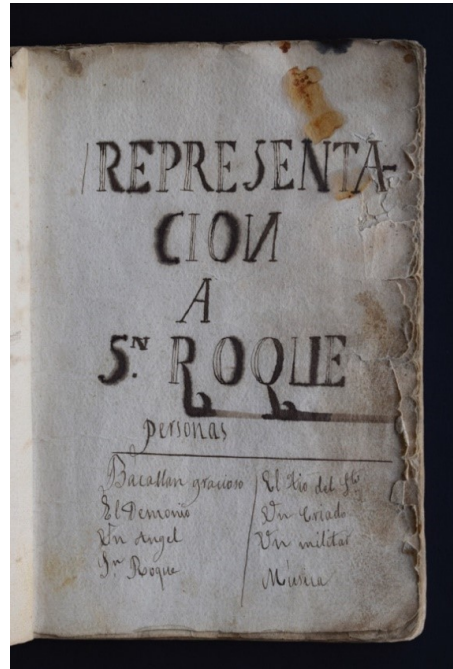 REPRESENTA-
CION
A
S.N ROQUE
personas
Bacallan gracioso
El Demonio
Un Angel
Sn. Roque
El Tio del Sto
Un Criado
Un militar
Musica